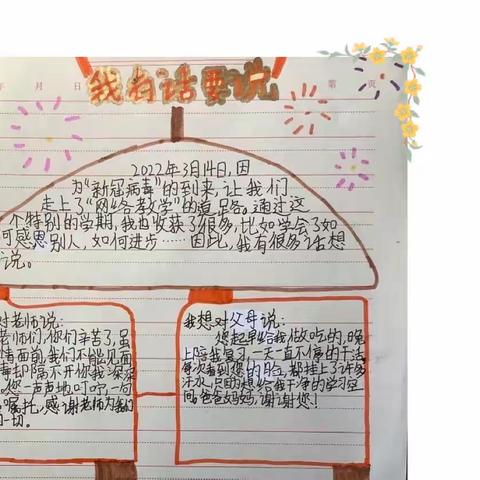 年 月 日
第 页
我有话要说
2022年3月14日,因
为"新冠病毒"的到来,让我们
走上了"网络教学"的道路。通过这
个特别的学期,我也收获了很多,比如学会了如
何感恩别人,如何进步……因此,我有很多话想
说。
对老师说:
老师们,你们辛苦了,虽
情面前,我们不能见面
毒却隔不开你我深深
您一声声地叮咛一句
嘱托,感谢老师为我们
一切。
我想对父母说:
您起早给我做吃的,晚
上陪我复习,一天一直不停的干活,
每次看到您的脸,都挂上了许多
汗水,只因想给我干净的学习空
间,爸爸妈妈,谢谢您!